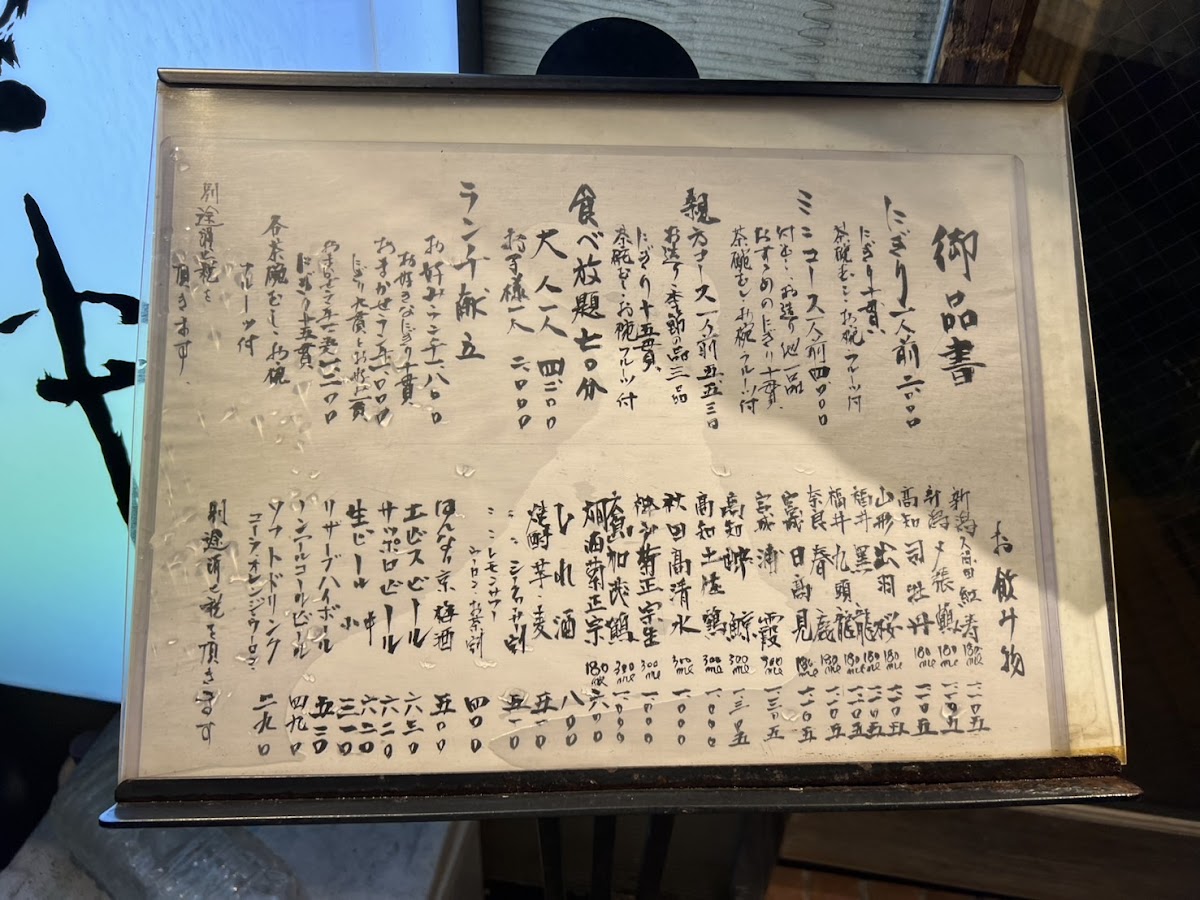 御品書
にぎり一人前 二六〇〇
にぎり十貫、
茶碗むし・お椀・フルーツ付
ミニコース一人前 四〇〇〇
付出し・お造り・他一品
おすすめのにぎり十貫、
茶碗むし・お椀・フルーツ付
親方コース一人前 五五三〇
お造り・季節の品三品
にぎり十五貫、
茶碗むし・お椀・フルーツ付
食べ放題七〇分
大人一人 四二〇〇
お子様一人 二〇〇〇
ランチ献立
お好みランチ 一八〇〇
お好きなにぎり十貫、
おまかせランチ
にぎり九貫とお巻一貫
にぎり十五貫
各茶碗むし・お椀
フルーツ付
別途消費税を
頂きます、
お飲み物
新潟 久保田 紅寿 180ml 一一〇五
新潟 〆張鶴 180ml 一一〇五
高知 司牡丹 180ml 一一〇五
山形 出羽桜 180ml 一一〇五
福井 黒龍 180ml 一一〇五
福井 九頭龍 180ml 一一〇五
奈良 春鹿 180ml 一一〇五
宮城 日高見
宮城 浦霞 300ml 一三〇五
高知 酔鯨 300ml 一三〇五
高知 土佐鶴 300ml 一〇〇〇
秋田 高清水 300ml 一〇〇〇
菊正宗生 300ml 一〇〇〇
加茂鶴 300ml 一〇〇〇
燗酒 菊正宗 180ml 六〇〇
ひれ酒 八〇〇
焼酎 芋・麦 五一〇
〃 シークワーサー割 五一〇
〃 レモンサワー
ウーロンお茶割 四〇〇
はんなり京梅酒 五〇〇
エビスビール 六三〇
サッポロビール 六二〇
生ビール 中 六二〇
小 三一〇
リザーブハイボール 五二〇
ノンアルコールビール 四九〇
ソフトドリンク 二九〇
コーラ・オレンジ・ウーロン
別途消費税を頂きます